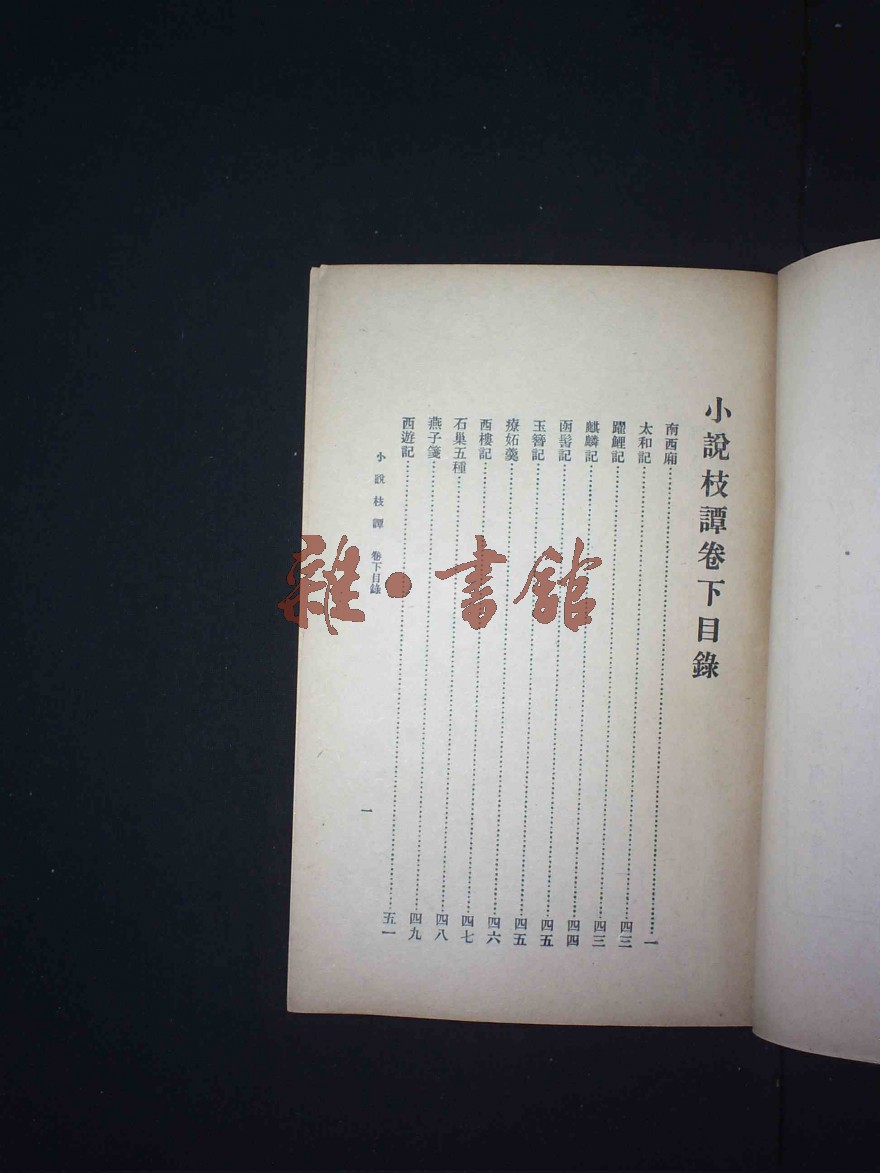 小說枝譚卷下目錄
南西廂……一
太和記……四三
躍鯉記……四三
麒麟記……四四
函髻記……四五
玉簪記……四五
療妬羹……四六
西樓記……四七
石巢五種……四八
燕子箋……四九
西遊記……五一
小說枝譚 卷下目錄
一
雜·書館